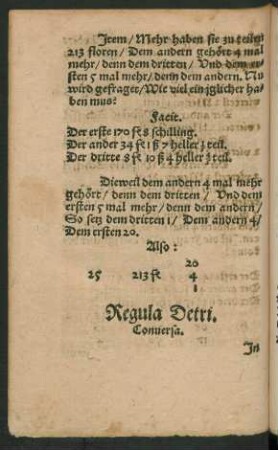 Item / Mehr haben sie zu teilen
213 floren / Dem andern gehört 4 mal
mehr / denn dem dritten / Und dem er
sten 5 mal mehr / denn dem andern. Nu
wird gefraget / Wie viel ein jglicher ha
ben mus?
Facit.
Der erste 170 fl 8 schilling.
Der ander 34 fl 1 ß 7 heller teil.
Der dritte 8 fl 10 ß 4 heller teil.
Dieweil dem andern 4 mal mehr
gehört / denn dem dritten / Und dem
ersten 5 mal mehr / denn dem andern /
So setz dem dritten 1 / Dem andern 4 /
Dem ersten 20.
Also:
20
25 213 fl 4
1
Regula Detri.
Conversa.
In